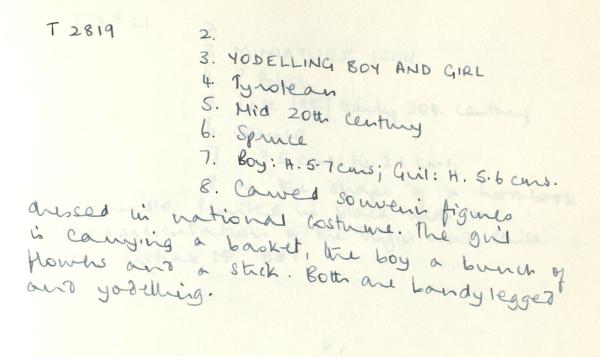 T 2819
2.
3. YODELLING BOY AND GIRL
4. Tyrolean
5. Mid 20th century
6. Spruce
7. Boy: H. 5.7 cms; Girl: H. 5.6 cms.
8. Carved souvenir figures
dressed in national costume. The girl
is carrying a basket, the boy a bunch of
flowers and a stick. Both are bandylegged
and yodelling.